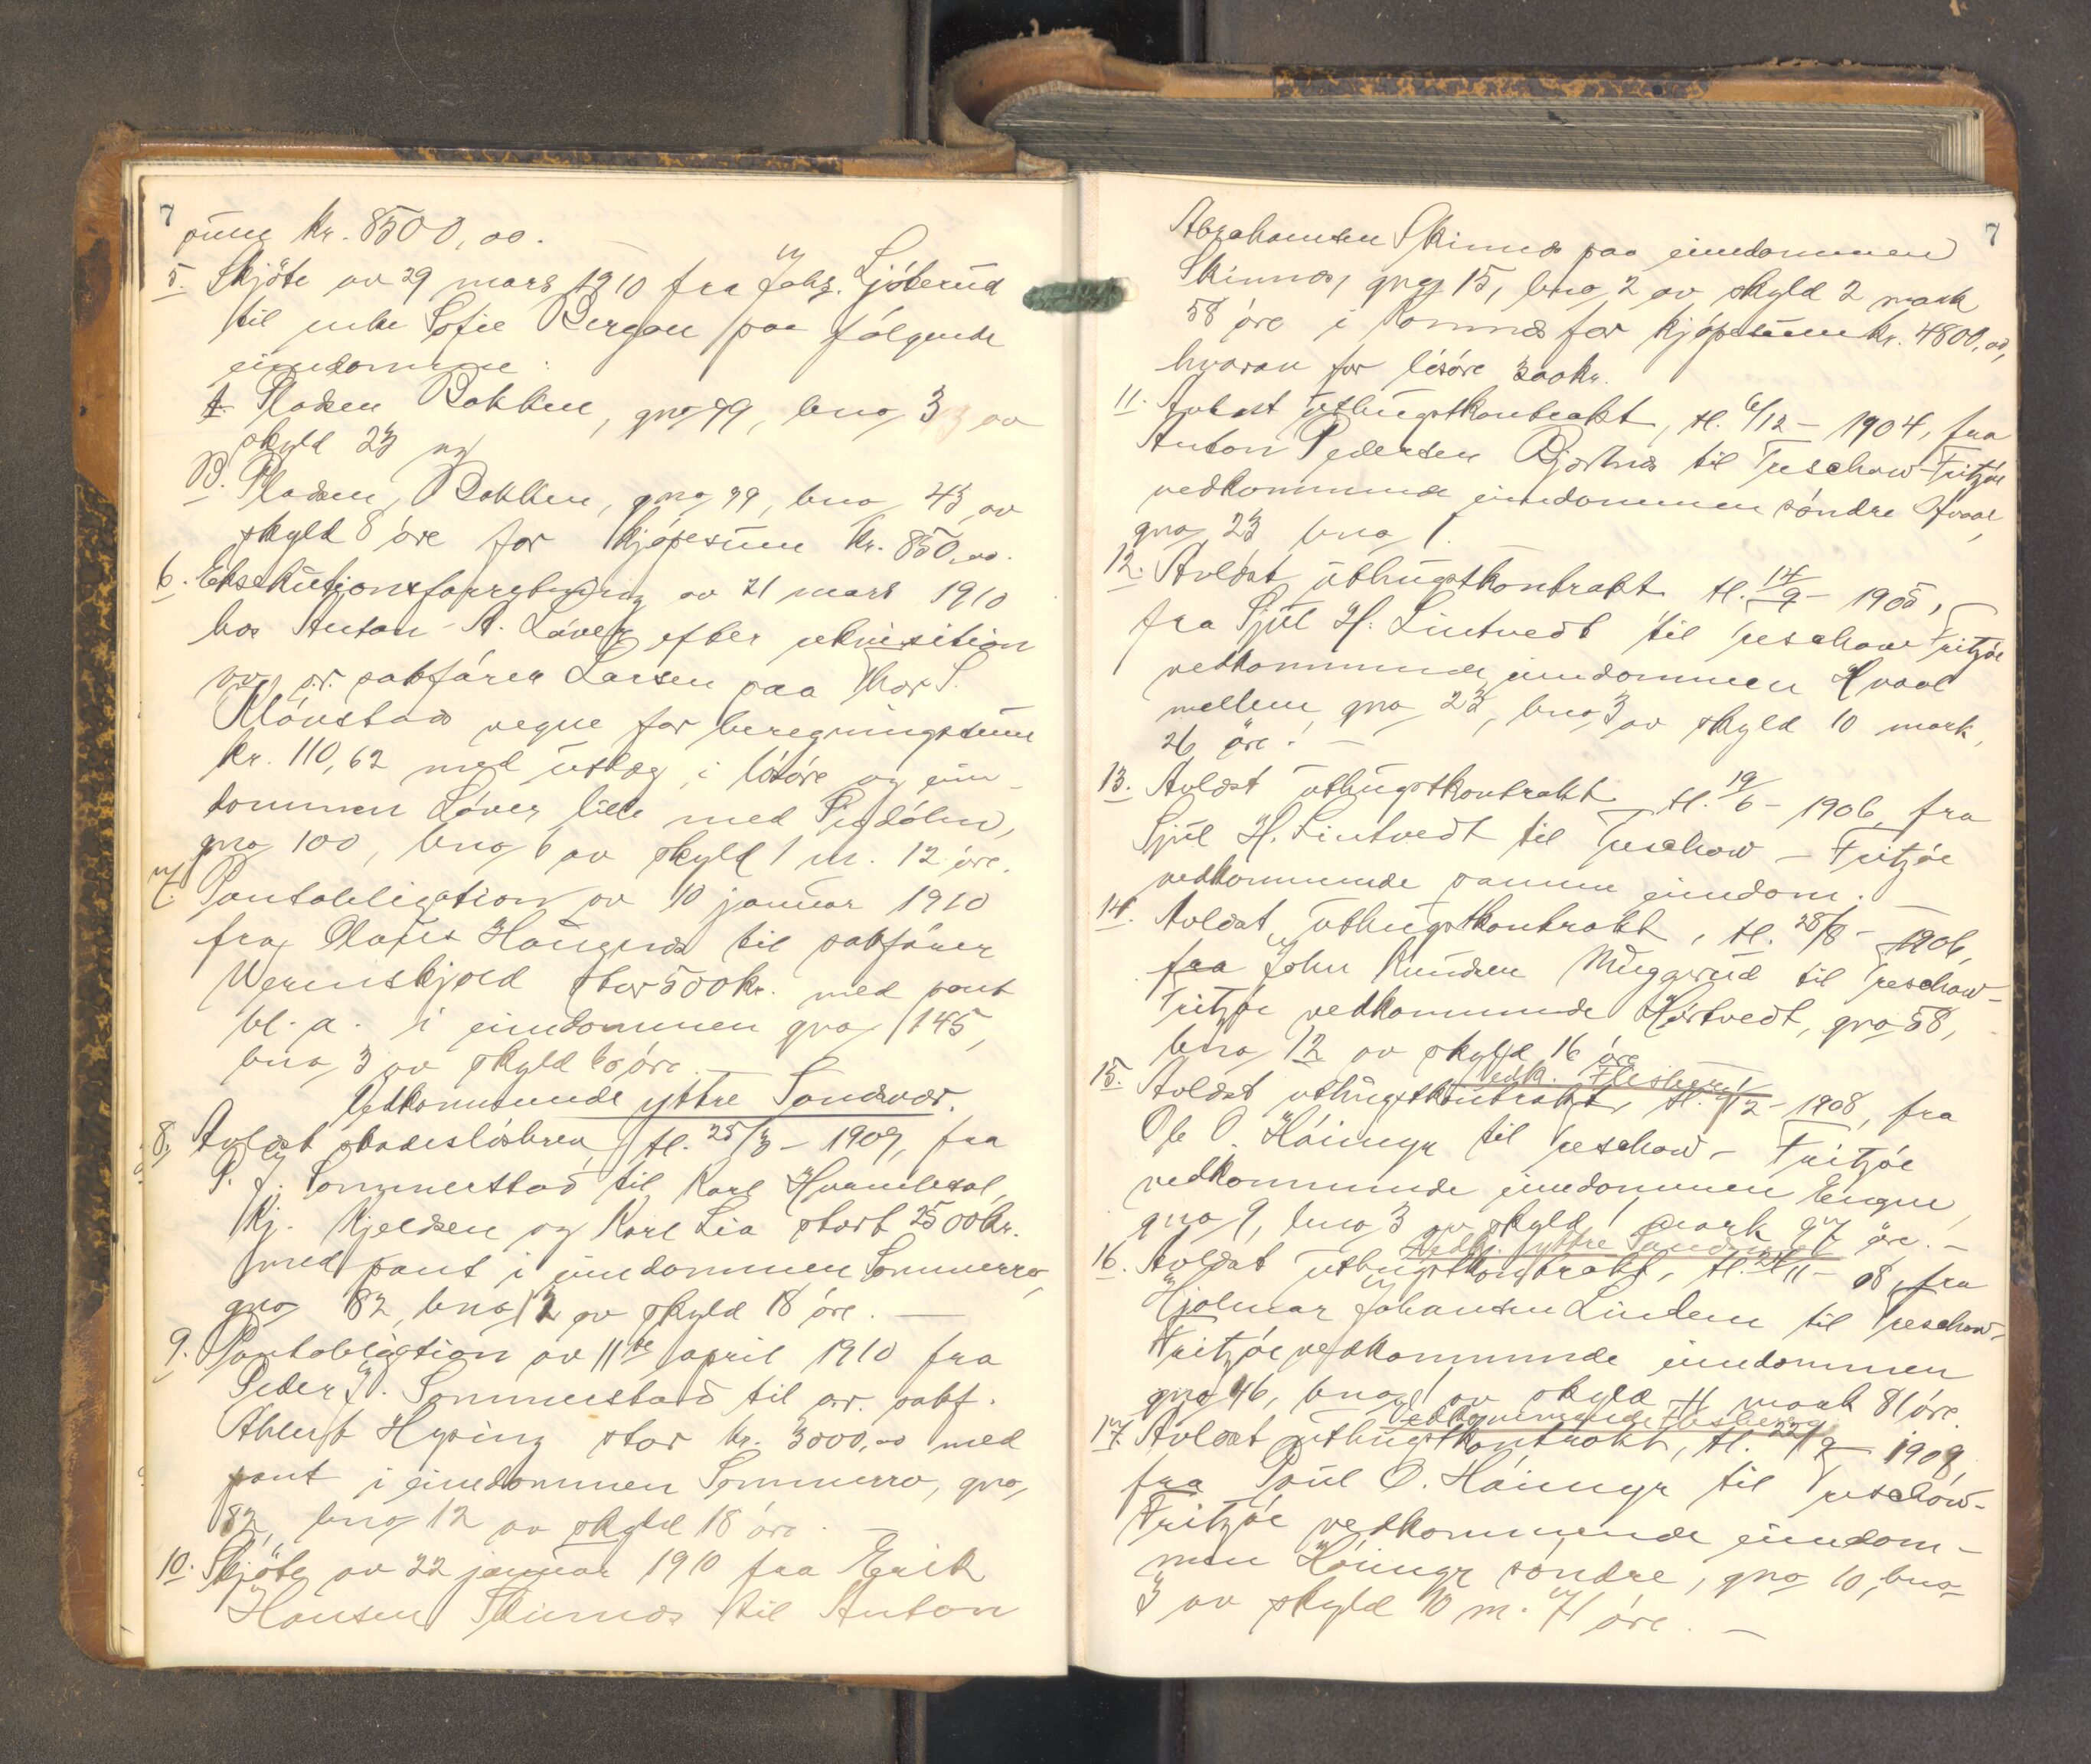 7
sum kr. 8500,00.
5. Skjöte av 29 mars 1910 fra Johs. Ljöterud
til enke Sofie Bergan paa fölgende
eiendomme:
A. Pladsen Bakken, gno 99, bno 3 av
skyld 23 og
B. Pladsen Bakken, gno 99, bno 43 av
skyld 8 öre for kjöpesum kr. 850,00.
6. Eksekutionsforretning av 21 mars 1910
hos Anton A. Löver efter rekvisition
av o.r. sakförer Larsen paa Thor S.
Klövstads vegne for beregningssum
kr. 110,62 med utlæg i lösöre og eien-
dommen Löver lille med
gno 100, bno 6 av skyld 1 m. 12 öre.
7. Pantobligation av 10 januar 1910
fra Olaus Haugnæs til sakförer
Werenskjold stor 500 kr. med pant
bl. a. i eiendommen gno 145,
bno 3 av skyld 60 öre.
Vedkommende yttre Sandsvær.
8. Avlöst skadeslösbrev, tl. 25/3 - 1909, fra
P. J. Sommerstad til Karl Hvamleval,
Kj. Kjeldsen og Karl Lia stort 2500 kr.
med pant i eiendommen Sommerro,
gno 82, bno 12 av skyld 18 öre.
9. Pantobligation av 11te april 1910 fra
Peder J. Sommerstad til o.r. sakf.
Ahlert Hysing stor kr. 3000,00 med
pant i eiendommen Sommerro, gno
82, bno 12 av skyld 18 öre.
10. Skjöte av 22 januar 1910 fra Erik
Hansen Skinnes til Anton
7
Abrahamsen Skinnes paa eiendommen
Skinnes, gno 15, bno 2 av skyld 2 mark
58 öre i Komnes for kjöpesum kr. 4800,00,
hvorav for lösöre 300 kr.
11. Avlöst uthugstkontrakt, tl. 6/12 - 1904, fra
Anton Pedersen Bjertnes til Treschow-Fritzöe
vedkommende eiendommen söndre Hvaal,
gno 23 bno 1.
12. Avlöst uthugstkontrakt tl. 14/9 - 1905,
fra Sjul H. Lintvedt til Treschow Fritzöe
vedkommende eiendommen Hvaal
mellem, gno 23, bno 3 av skyld 10 mark,
26 öre. -
13. Avlöst uthugstkontrakt tl. 19/6 - 1906, fra
Sjul H. Lintvedt til Treschow - Fritzöe
vedkommende samme eiendom. -
14. Avlöst uthugstkontrakt, tl. 28/8 - 1906,
fra John Knudsen Muggerud til Treschow-
Fritzöe vedkommende Hörtvedt, gno 58,
bno 12 av skyld 16 öre
Vedk. Flesberg
15. Avlöst uthugstkontrakt, tl. 9/2 - 1908, fra
Ole O. Höimyr til Treschow - Fritzöe
vedkommende eiendommen Engne,
gno 9, bno 3 av skyld 1 mark 97 öre. -
Vedk. yttre Sandsvær
16. Avlöst uthugstkontrakt, tl. 24/11 - 08, fra
Hjalmar Johansen Lindem til Treschow-
Fritzöe vedkommende eiendommen
gno 46, bno 1 av skyld 4 mark 81 öre.
Vedkommende Flesberg
17. Avlöst uthugstkontrakt, tl. 22/9 - 1909,
fra Paul O. Höimyr til Treschow-
Fritzöe vedkommende eiendom-
men Höimyr söndre, gno 10, bno
3 av skyld 10 m. 71 öre. -